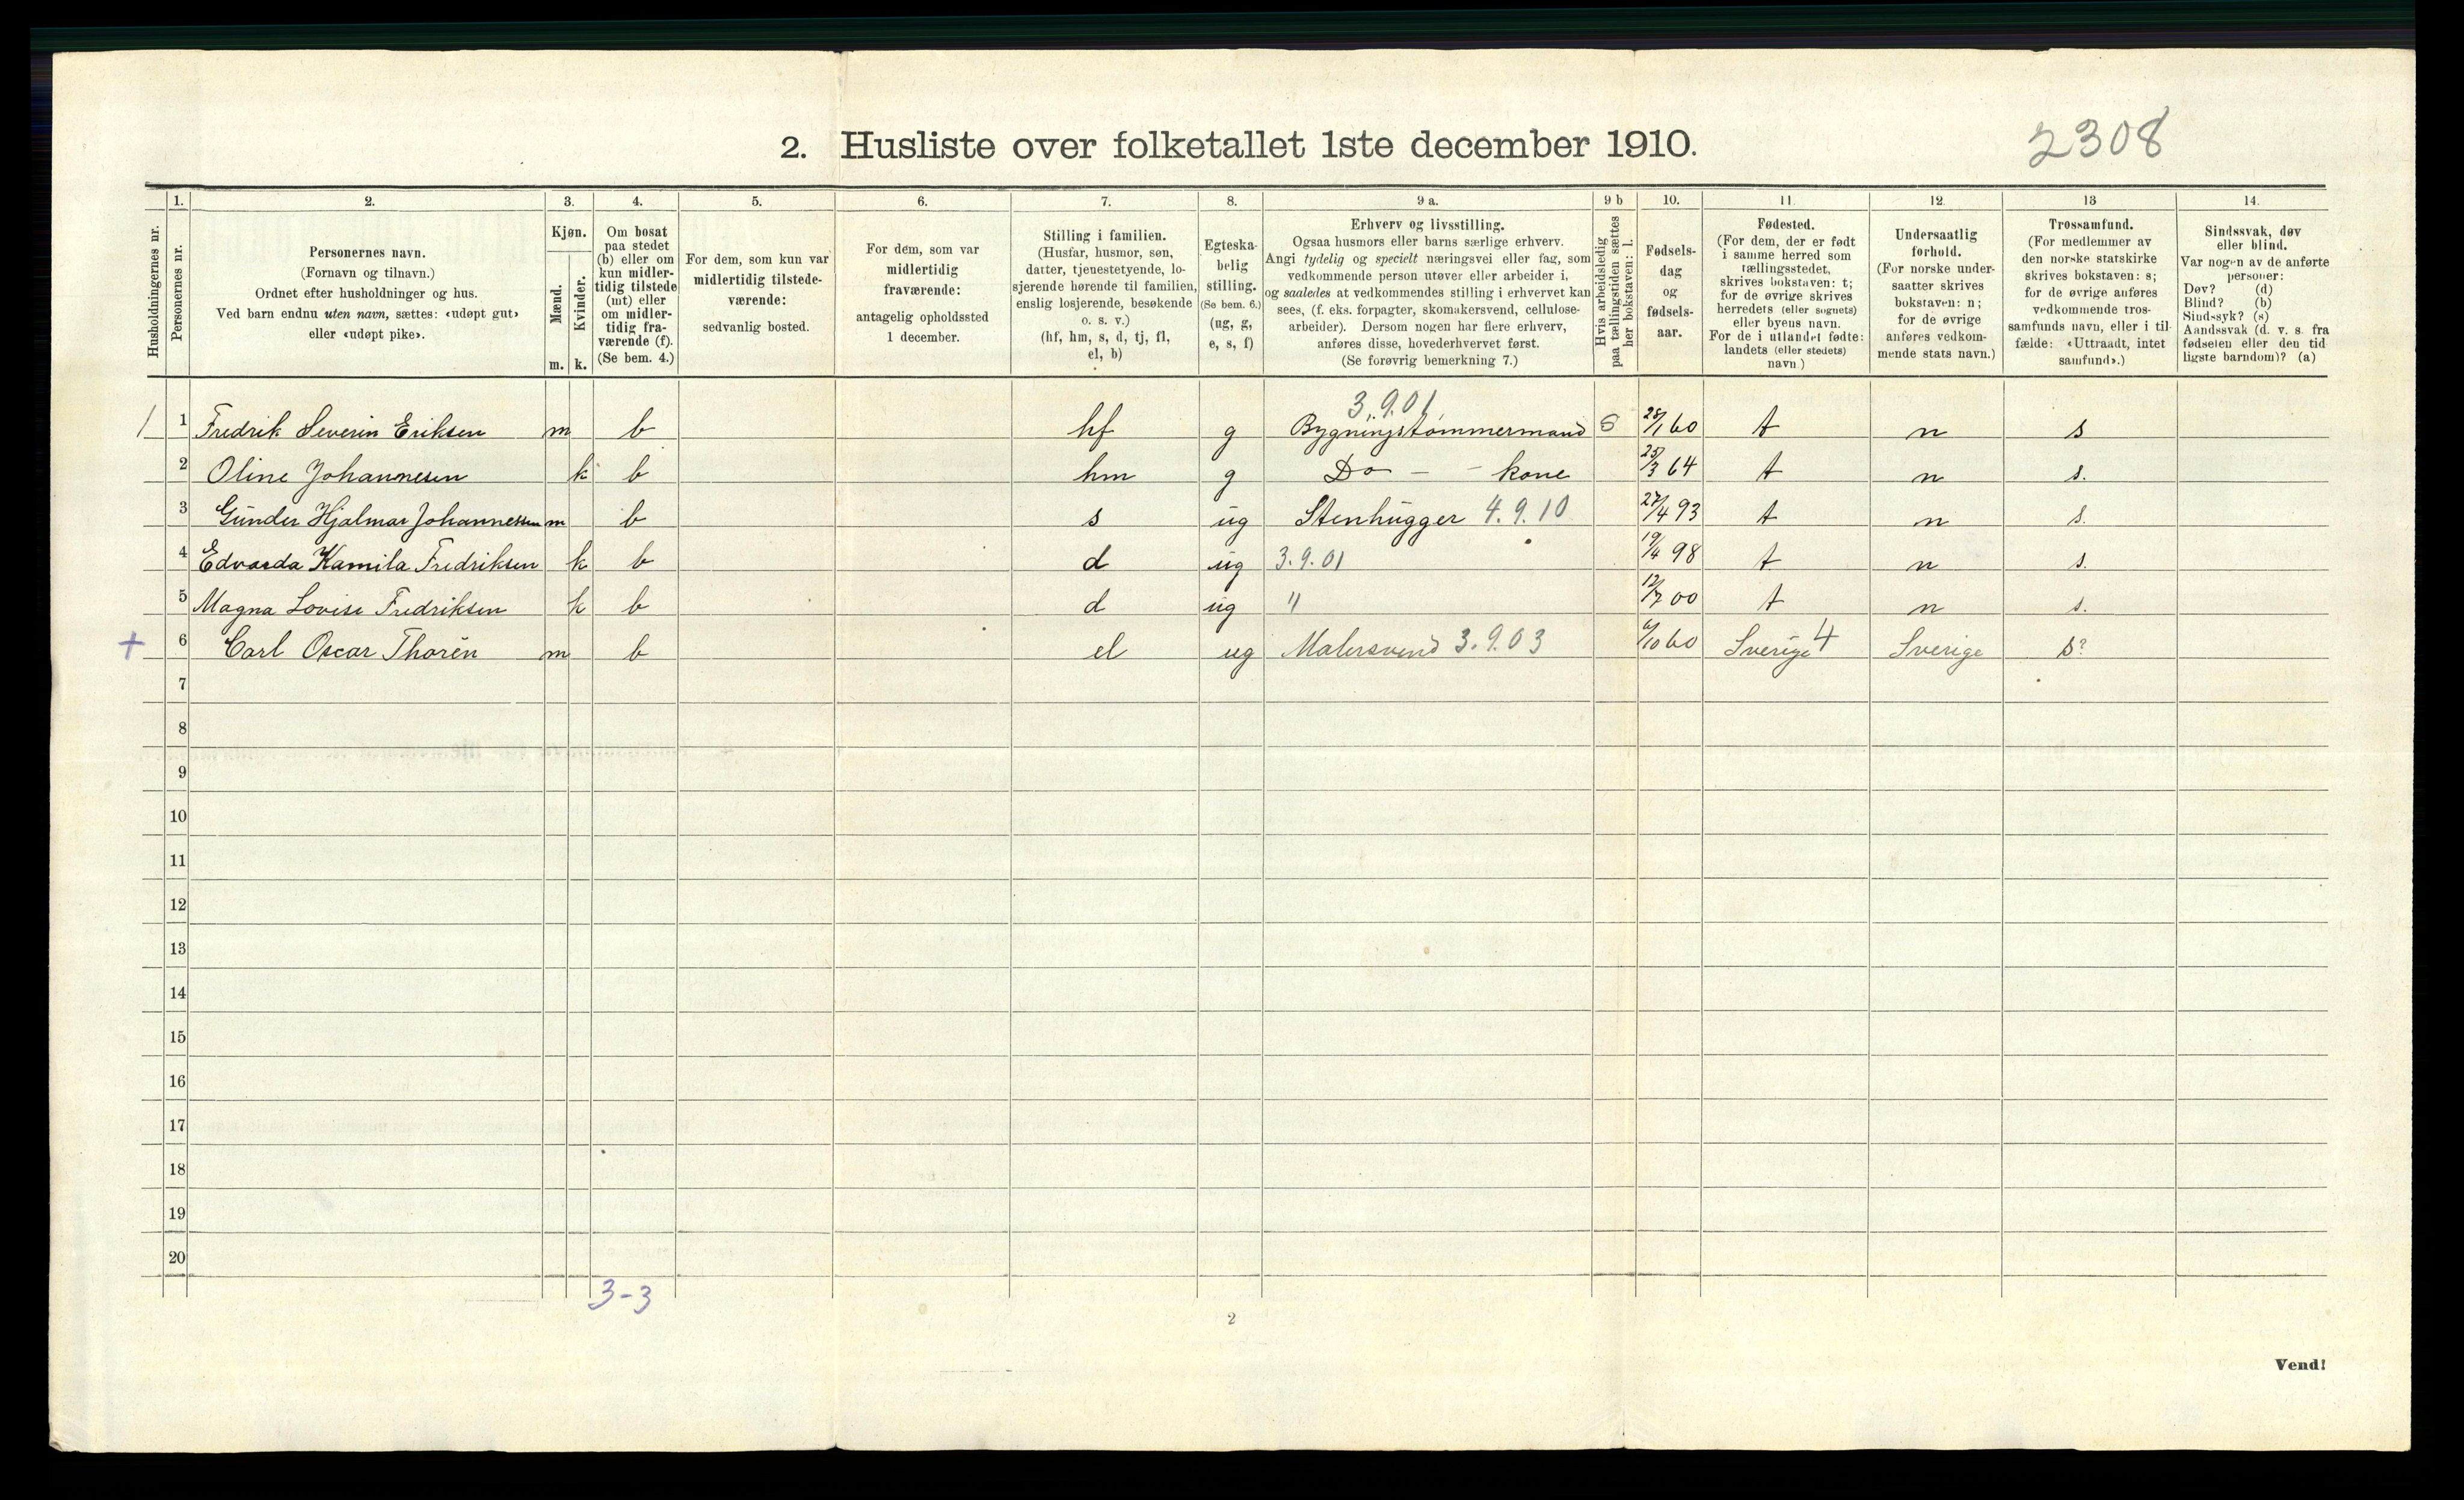 2. Husliste over folketallet 1ste december 1910.
2308
Husholdningernes nr.
1. Personernes nr.
2. Personernes navn.
(Fornavn og tilnavn.)
Ordnet efter husholdninger og hus.
Ved barn endnu uten navn, sættes: «udøpt gut»
eller «udøpt pike».
3. Kjøn.
Mænd. m.
Kvinder. k.
4. Om bosat
paa stedet
(b) eller om
kun midler-
tidig tilstede
(mt) eller
om midler-
tidig fra-
værende (f).
(Se bem. 4.)
5. For dem, som kun var
midlertidig tilstede-
værende:
sedvanlig bosted.
6. For dem, som var
midlertidig
fraværende:
antagelig opholdssted
1 december.
7. Stilling i familien.
(Husfar, husmor, søn,
datter, tjenestetyende, lo-
sjerende hørende til familien,
enslig losjerende, besøkende
o. s. v.)
(hf, hm, s, d, tj, fl,
el, b)
8. Egteska-
belig
stilling.
(Se bem. 6.)
(ug, g,
e, s, f)
9 a. Erhverv og livsstilling.
Ogsaa husmors eller barns særlige erhverv.
Angi tydelig og specielt næringsvei eller fag, som
vedkommende person utøver eller arbeider i,
og saaledes at vedkommendes stilling i erhvervet kan
sees, (f. eks. forpagter, skomakersvend, cellulose-
arbeider). Dersom nogen har flere erhverv,
anføres disse, hovederhvervet først.
(Se forøvrig bemerkning 7.)
9 b Hvis arbeidsledig
paa tællingstiden sættes
her bokstaven: l.
10. Fødsels-
dag
og
fødsels-
aar.
11. Fødested.
(For dem, der er født
i samme herred som
tællingsstedet,
skrives bokstaven: t;
for de øvrige skrives
herredets (eller sognets)
eller byens navn.
For de i utlandet fødte:
landets (eller stedets)
navn.)
12. Undersaatlig
forhold.
(For norske under-
saatter skrives
bokstaven: n;
for de øvrige
anføres vedkom-
mende stats navn.)
13. Trossamfund.
(For medlemmer av
den norske statskirke
skrives bokstaven: s;
for de øvrige anføres
vedkommende tros-
samfunds navn, eller i til-
fælde: «Uttraadt, intet
samfund».)
14. Sindssvak, døv
eller blind.
Var nogen av de anførte
personer:
Døv? (d)
Blind? (b)
Sindssyk? (s)
Aandssvak (d. v. s. fra
fødselen eller den tid
ligste barndom)? (a)
3.9.01
1 1 Fredrik Severin Eriksen m b hf g Bygningstømmermand S 28/1 60 t n s
2 Oline Johannesen k b hm g Do - - kone 25/3 64 t n s.
3 Gunder Hjalmar Johannessen m b s ug Stenhugger 4.9.10 27/4 93 t n s.
4 Edvarda Kamila Fredriksen k b d ug 3.9.01 19/4 98 t n s.
5 Magna Lovise Fredriksen k b d ug " 12/7 00 t n s.
+ 6 Carl Oscar Thorén m b el ug Malersvend 3.9.03 6/10 60 Sverige 4 Sverige s?
7
8
9
10
11
12
13
14
15
16
17
18
19
20
3-3
2
Vend!